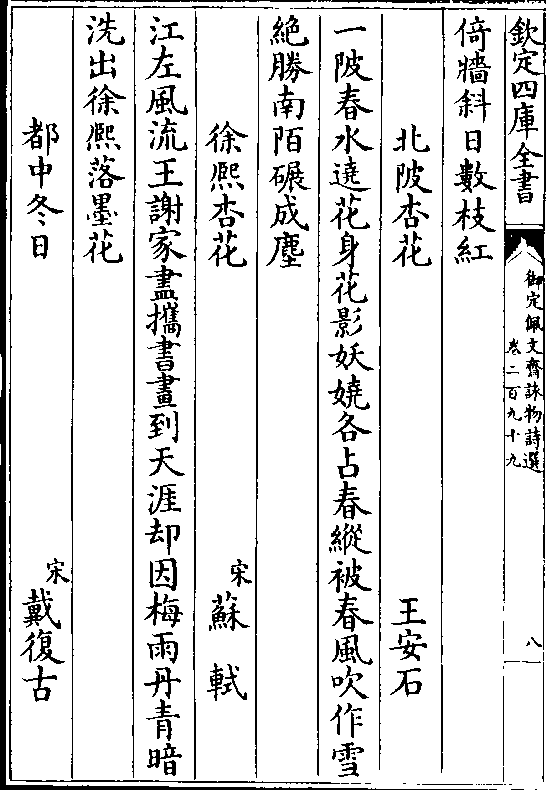 欽定四庫全書
御定佩文齋詠物詩選
卷二百九十九
八
倚牆斜日數枝紅
北陂杏花
王安石
一陂春水遶花身花影妖嬈各占春縱被春風吹作雪
絶勝南陌碾成塵
徐熙杏花
宋蘇軾
江左風流王謝家盡攜書畫到天涯却因梅雨丹青暗
洗出徐熙落墨花
都中冬日
宋戴復古